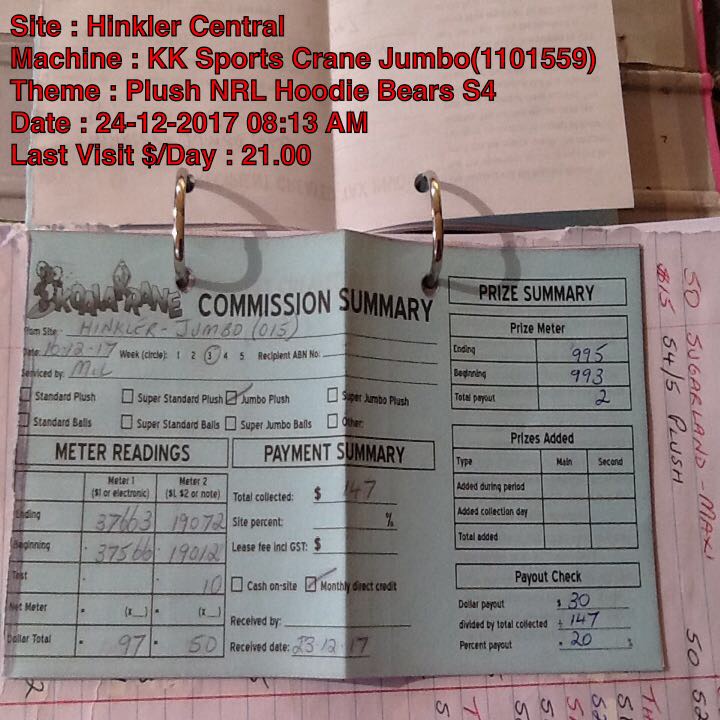 Site : Hinkler Central
Machine : KK Sports Crane Jumbo(1101559)
Theme : Plush NRL Hoodie Bears S4
Date : 24-12-2017 08:13 AM
Last Visit $/Day : 21.00
KOALA KRANE COMMISSION SUMMARY
from Site: HINKLER - JUMBO (015)
Date: 16-12-17 Week (circle): 1 2 3 4 5 Recipient ABN No:
Serviced by:
Standard Plush Super Standard Plush Jumbo Plush Super Jumbo Plush
Standard Balls Super Standard Balls Super Jumbo Balls Other:
METER READINGS
Meter 1 Meter 2
($1 or electronic) ($1, $2 or note)
Ending 37663 19072
Beginning 37566 19012
Test 10
Net Meter = (x__) = (x__)
Dollar Total = 97 = 50
PAYMENT SUMMARY
Total collected: $ 147
Site percent: %
Lease fee incl GST: $
Cash on-site Monthly direct credit
Received by:
Received date: 23.12.17
PRIZE SUMMARY
Prize Meter
Ending 995
Beginning 993
Total payout 2
Prizes Added
Type Main Second
Added during period
Added collection day
Total added
Payout Check
Dollar payout $ 30
divided by total collected ÷ 147
Percent payout = 20 %
50 SUGARLAND - MAXI
$15 S4/5 PLUSH
50